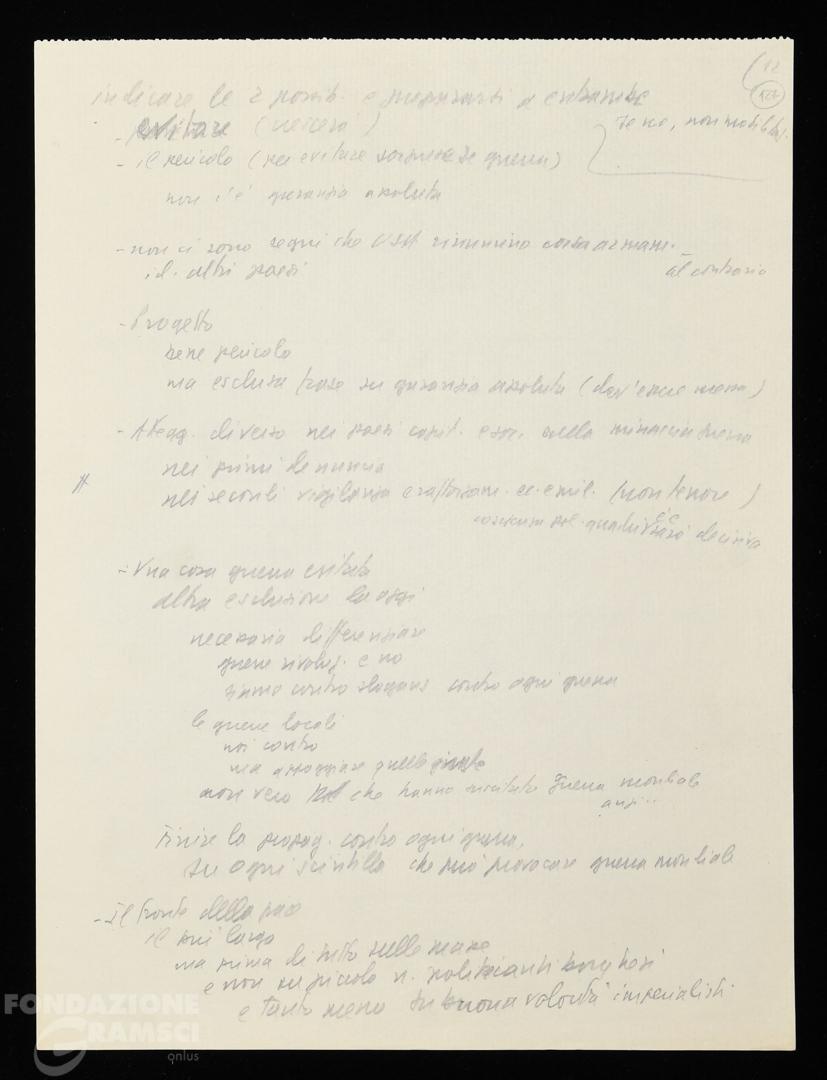 12
127
indicare le 2 possib. e prepararsi a entrambe
evitare (necess.)
se no, non mobilitaz.
- il pericolo (per evitare guerra)
non c'è garanzia assoluta
- non ci sono segni che USA rinuncino corsa armam.
id. altri paesi
al contrario
- Progetto
bene pericolo
ma esclusa frase su garanzia assoluta (dev'essere messa)
- Attegg. diverso nei paesi capit. e soc. sulla minaccia guerra
nei primi denuncia
nei secondi vigilanza e rafforzam. ec. e mil. (non tenore)
decisiva
- Una cosa guerra evitata
altra esclusione
necessario differenziare
guerre rivoluz. e no
siamo contro slogans contro ogni guerra
le guerre locali
noi contro
ma appoggiare quelle giuste
non vero che hanno suscitato guerra mondiale
anzi...
Finire la propag. contro ogni guerra,
su ogni scintilla che può provocare guerra mondiale
- Il fronte della pace
il più largo
ma prima di tutto sulle masse
e non su piccolo n. politicanti borghesi
e tanto meno su buona volontà imperialisti.
FONDAZIONE
GRAMSCI
onlus